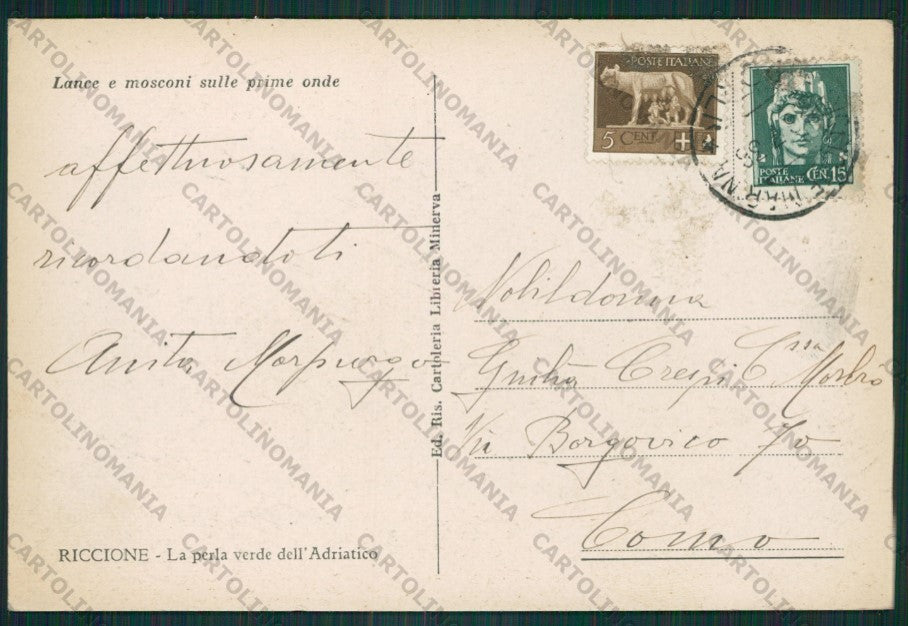 Lance e mosconi sulle prime onde
affettuosamente
ricordandoti
Anita Morpurgo
RICCIONE - La perla verde dell'Adriatico
Ed. Ris. Cartoleria Libreria Minerva
POSTE ITALIANE
5 CENT.
POSTE
ITALIANE CEN. 15
Nobildonna
Giulia Crespi C.ssa
Via Borgovico 70
Como
CARTOLINOMANIA